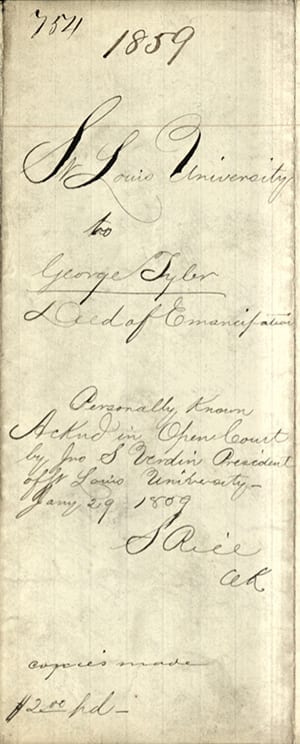 754
1859
St Louis University
to
George Tyler
Deed of Emancipation
Personally Known
Acknd in Open Court
by Jno S Verdin President
of St Louis University—
Jany 29 1859
S Rice
Clk
copies made
$2.00 pd—